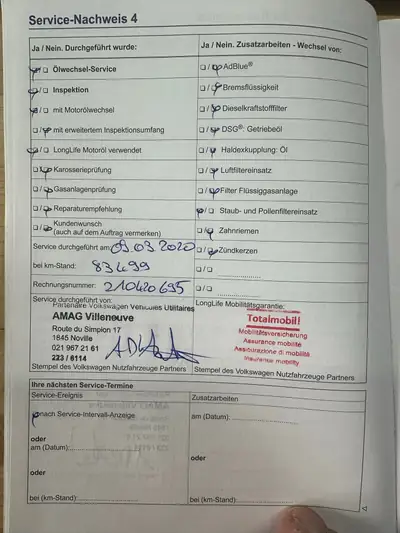 Service-Nachweis 4
Ja / Nein. Durchgeführt wurde:
❑ / ❑ Ölwechsel-Service
❑ / ❑ Inspektion
❑ / ❑ mit Motorölwechsel
❑ / ❑ mit erweitertem Inspektionsumfang
❑ / ❑ LongLife Motoröl verwendet
❑ / ❑ Karosserieprüfung
❑ / ❑ Gasanlagenprüfung
❑ / ❑ Reparaturempfehlung
❑ / ❑ Kundenwunsch
(auch auf dem Auftrag vermerken)
Service durchgeführt am: 09 03 2020
bei km-Stand: 83499
Rechnungsnummer: 210420695
Service durchgeführt von:
Partenaire Volkswagen Véhicules Utilitaires
AMAG Villeneuve
Route du Simplon 17
1845 Noville
021 967 21 61
223 / 6114
Stempel des Volkswagen Nutzfahrzeuge Partners
Ja / Nein. Zusatzarbeiten - Wechsel von:
❑ / ❑ AdBlue®
❑ / ❑ Bremsflüssigkeit
❑ / ❑ Dieselkraftstofffilter
❑ / ❑ DSG®: Getriebeöl
❑ / ❑ Haldexkupplung: Öl
❑ / ❑ Luftfiltereinsatz
❑ / ❑ Filter Flüssiggasanlage
❑ / ❑ Staub- und Pollenfiltereinsatz
❑ / ❑ Zahnriemen
❑ / ❑ Zündkerzen
❑ / ❑
❑ / ❑
LongLife Mobilitätsgarantie:
Totalmobil!
Mobilitätsversicherung
Assurance mobilité
Assicurazione di mobilità
Insurance mobility
Stempel des Volkswagen Nutzfahrzeuge Partners
Ihre nächsten Service-Termine
Service-Ereignis
❑ nach Service-Intervall-Anzeige
oder
am (Datum):
oder
bei (km-Stand):
Zusatzarbeiten
am (Datum):
oder
bei (km-Stand):